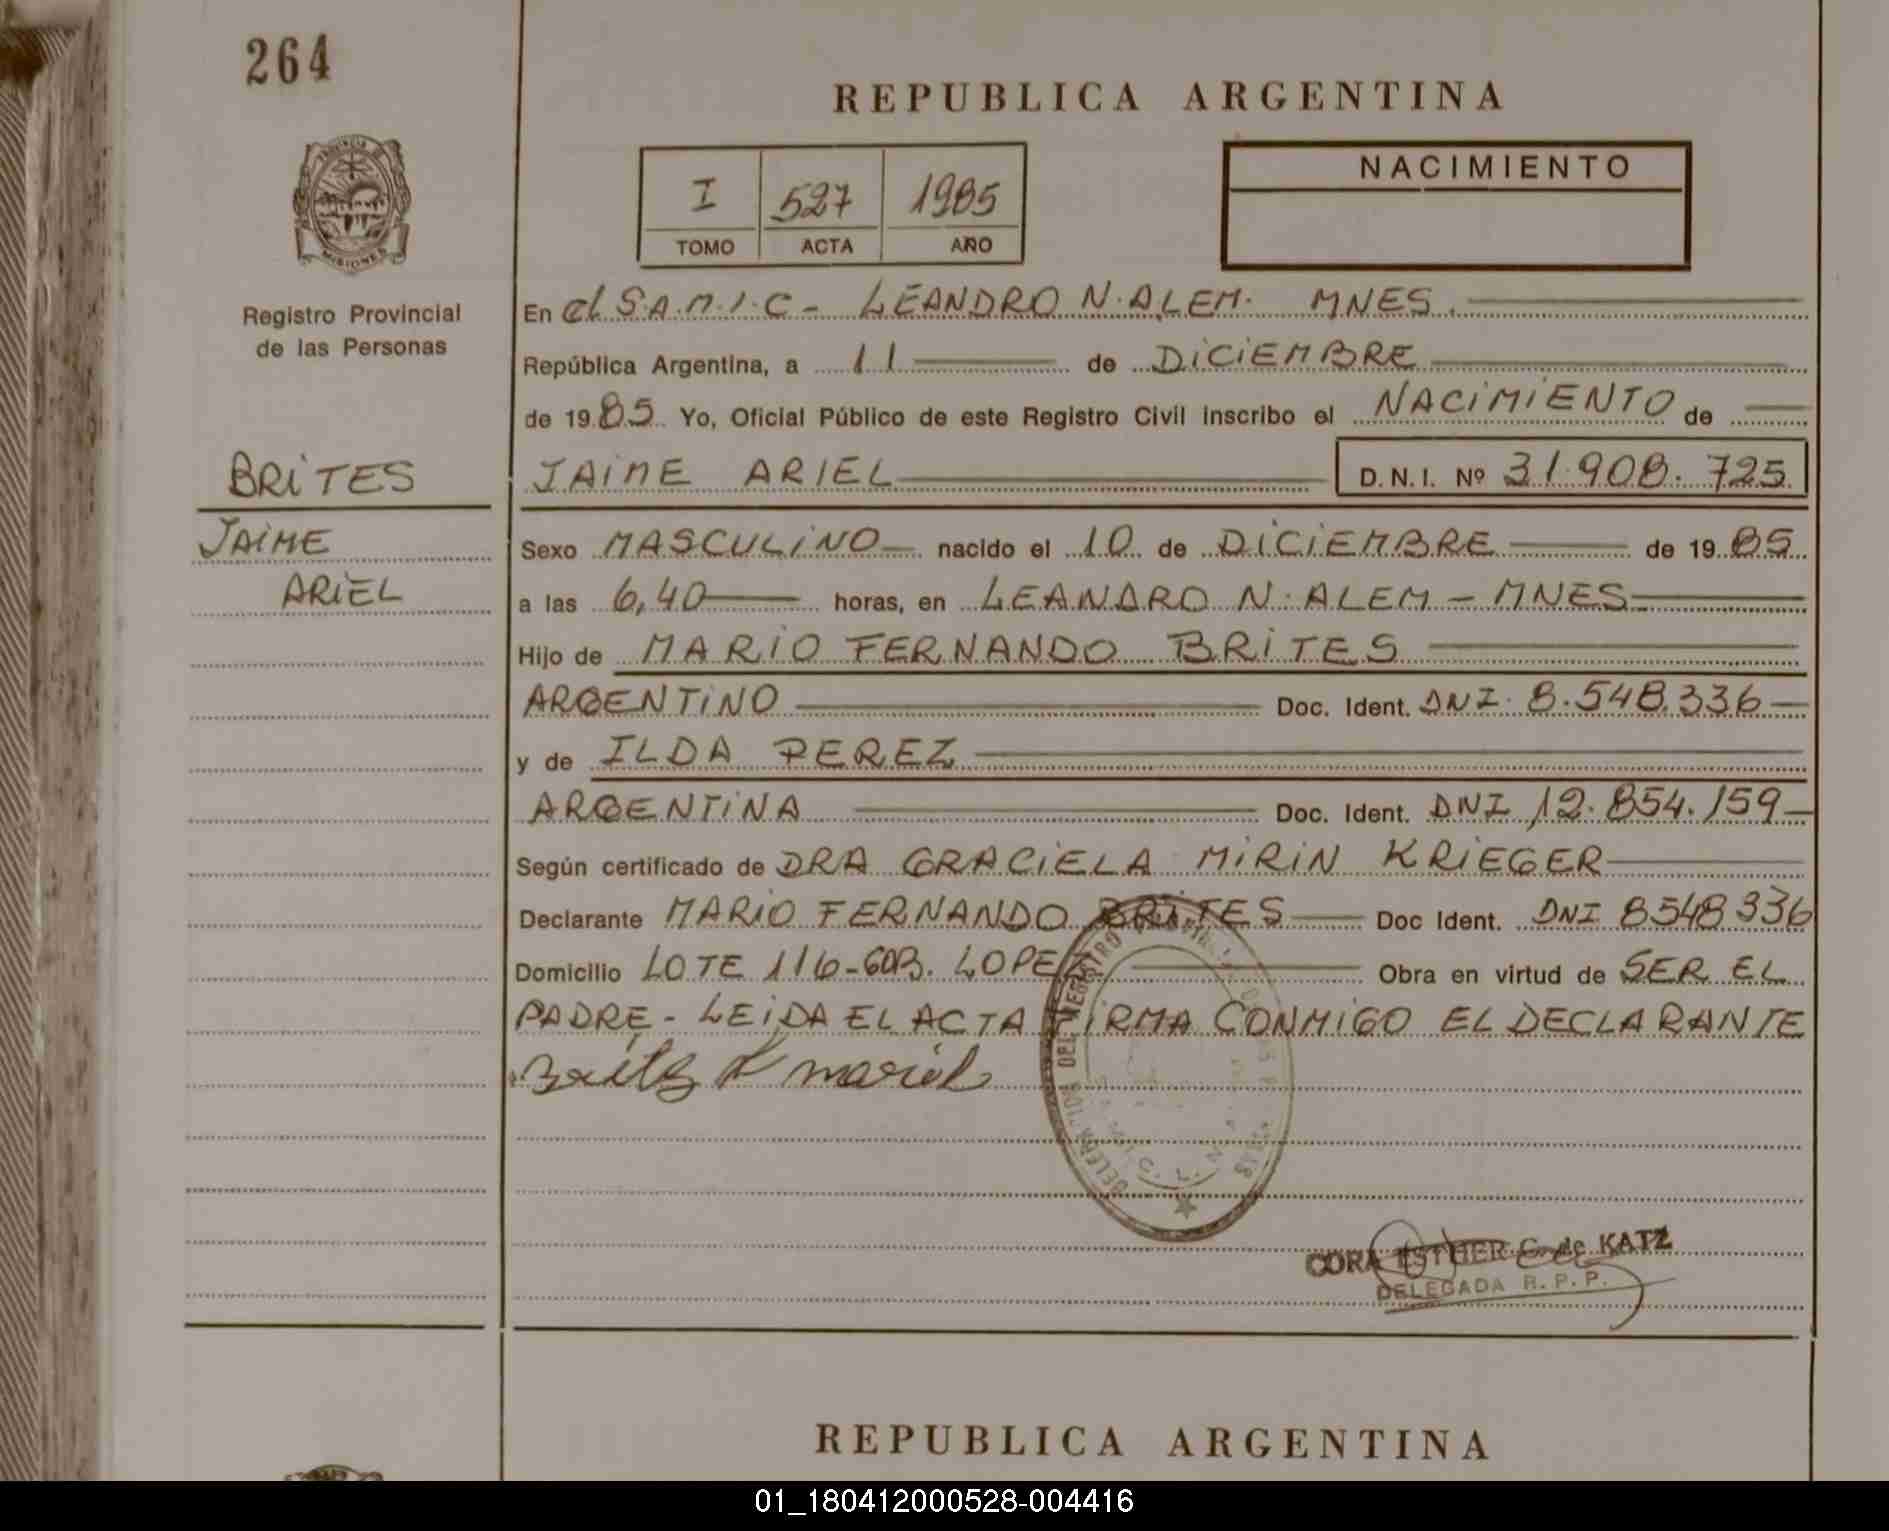 264
REPUBLICA ARGENTINA
PROVINCIA DE
MISIONES
Registro Provincial
de las Personas
I 527 1985
TOMO ACTA AÑO
NACIMIENTO
En el S.A.M.I.C - LEANDRO N. ALEM. MNES.
República Argentina, a 11 de DICIEMBRE
de 1985 Yo, Oficial Público de este Registro Civil inscribo el NACIMIENTO de
BRITES
JAIME ARIEL D.N.I. Nº 31.908.725
JAIME
ARIEL
Sexo MASCULINO nacido el 10 de DICIEMBRE de 1985
a las 6,40 horas, en LEANDRO N. ALEM - MNES
Hijo de MARIO FERNANDO BRITES
ARGENTINO Doc. Ident. DNI. 8.548.336
y de ILDA PEREZ
ARGENTINA Doc. Ident. DNI 12.854.159
Según certificado de DRA GRACIELA MIRIN KRIEGER
Declarante MARIO FERNANDO BRITES Doc Ident. DNI 8548336
Domicilio LOTE 116-GOB. LOPEZ Obra en virtud de SER EL
PADRE - LEIDA EL ACTA FIRMA CONMIGO EL DECLARANTE
DEL REGISTRO
C. L. N.
CORA ESTHER G. de KATZ
DELEGADA R.P.P.
REPUBLICA ARGENTINA
01_180412000528-004416